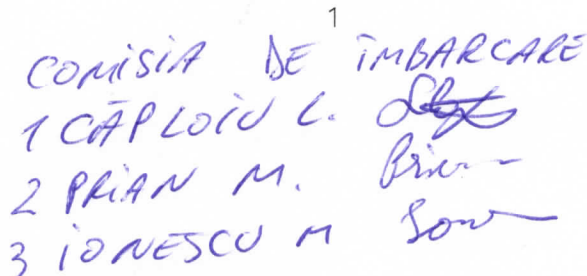 1
COMISIA DE ÎMBARCARE
1 CĂPLOIU L.
2 PRIAN M.
3 IONESCU M